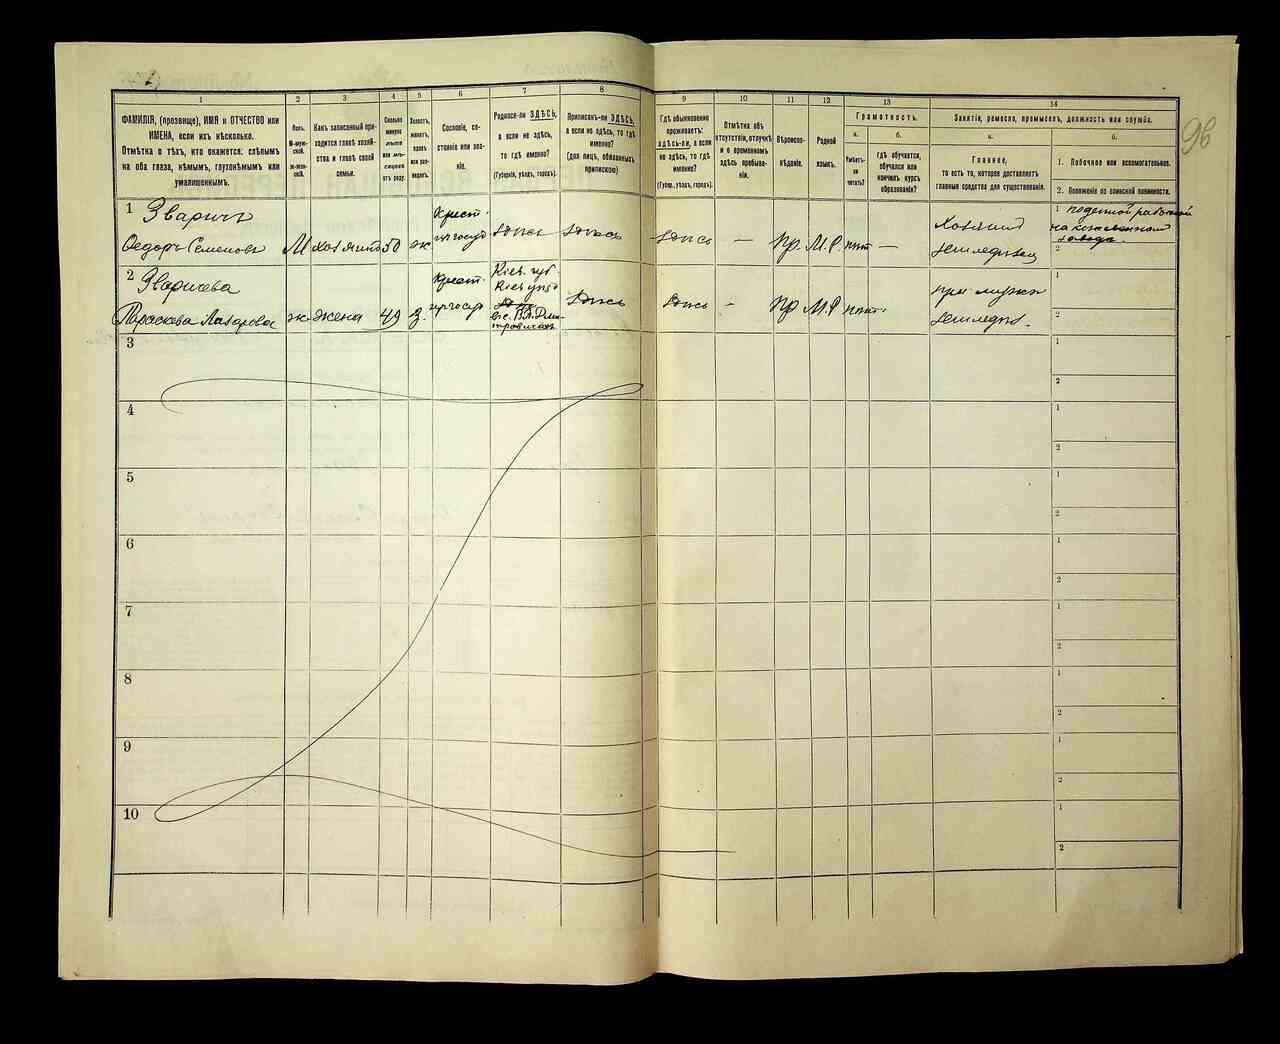 1
2
3
4
5
6
7
8
9
10
11
12
13
14
ФАМИЛІЯ, (прозвище), ИМЯ и ОТЧЕСТВО или
ИМЕНА, если ихъ нѣсколько.
Отмѣтка о тѣхъ, кто окажется: слѣпымъ
на оба глаза, нѣмымъ, глухонѣмымъ или
умалишеннымъ.
Полъ.
М-муж-
ской.
Ж-жен-
скій.
Какъ записанный при-
ходится главѣ хозяй-
ства и главѣ своей
семьи.
Сколько
минуло
лѣтъ
или мѣ-
сяцевъ
отъ роду.
Холостъ,
женатъ,
вдовъ
или раз-
веденъ.
Сословіе, со-
стояніе или зва-
ніе.
Родился-ли ЗДѢСЬ,
а если не здѣсь,
то гдѣ именно?
(Губернія, уѣздъ, городъ).
Приписанъ-ли ЗДѢСЬ,
а если не здѣсь, то гдѣ
именно?
(для лицъ, обязанныхъ
припискою)
Гдѣ обыкновенно
проживаетъ:
здѣсь-ли, а если
не здѣсь, то гдѣ
именно?
(Губерн., уѣздъ, городъ).
Отмѣтка объ
отсутствіи, отлучкѣ
и о временномъ
здѣсь пребыва-
ніи.
Вѣроиспо-
вѣданіе.
Родной
языкъ.
Грамотность.
а.
Умѣетъ-
ли
читать?
б.
гдѣ обучается,
обучался или
кончилъ курсъ
образованія?
Занятіе, ремесло, промыселъ, должность или служба.
а.
Главное,
то есть то, которое доставляетъ
главныя средства для существованія.
б.
1. Побочное или вспомогательное.
2. Положеніе по воинской повинности.
96
1 Зваричъ
Федоръ Семеновъ
М
хозяинъ
50
ж
Крест.
здѣсь
здѣсь
здѣсь
—
Пр.
М.Р.
нѣтъ
—
Хозяинъ
земледѣлец
1 поденной работой
на кожевенном
заводѣ.
2
2 Зваричева
Параскева Лазарева
ж
жена
49
з.
Крест.
Кіев. губ
Кіев. уѣз.
здѣсь
здѣсь
—
Пр
М.Р
нѣтъ
при мужѣ
земледѣл.
1
2
3
1
2
4
1
2
5
1
2
6
1
2
7
1
2
8
1
2
9
1
2
10
1
2